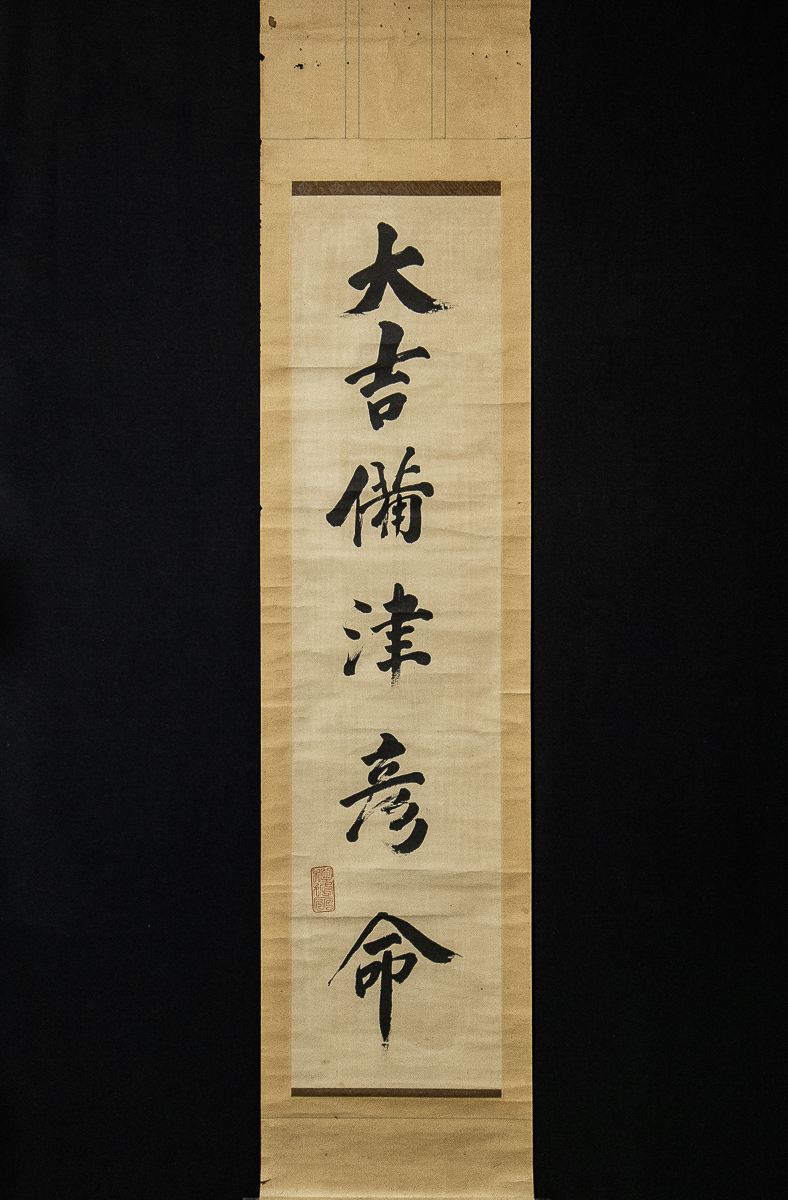 大吉備津彦命